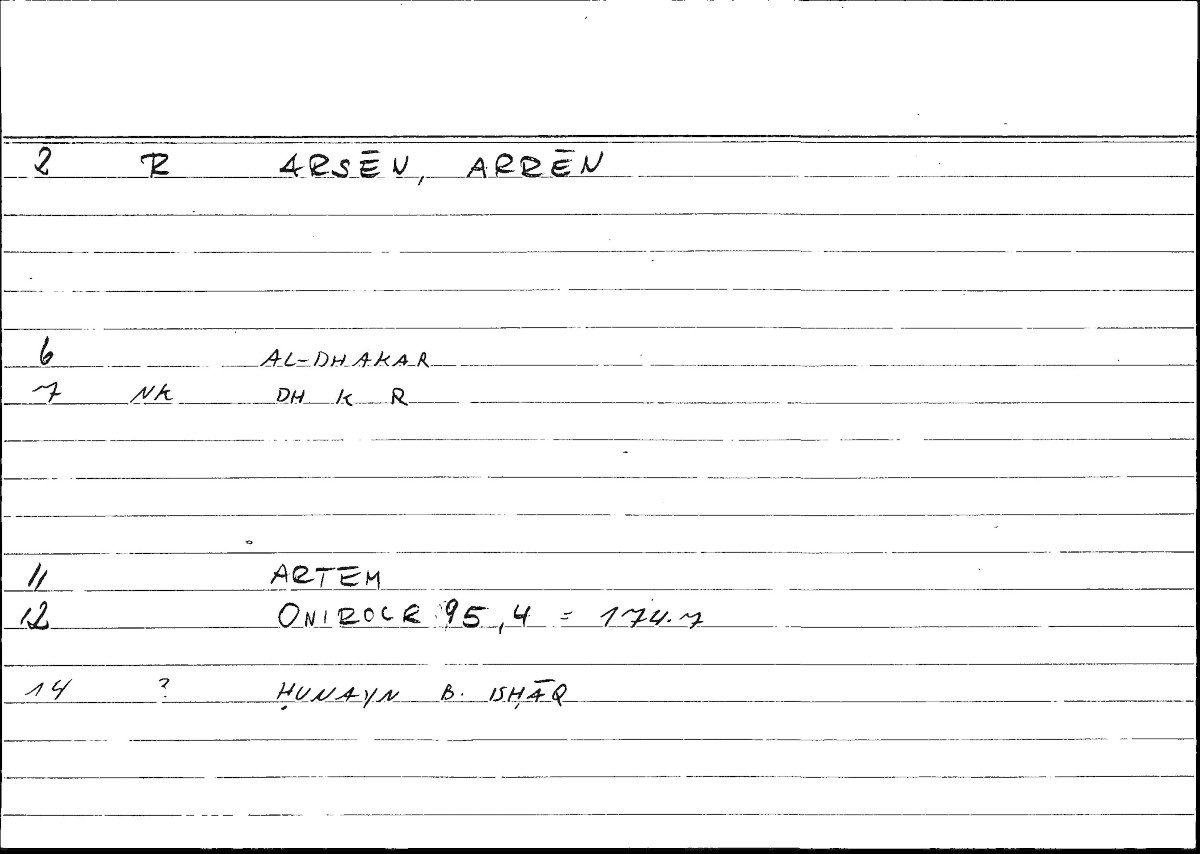 2 R ARSĒN, ARRĒN
6 AL-DHAKAR
7 NK DH K R
11 ARTEM
12 ONIROCR 95,4 = 174.7
14 ? ḤUNAYN B. ISḤĀQ